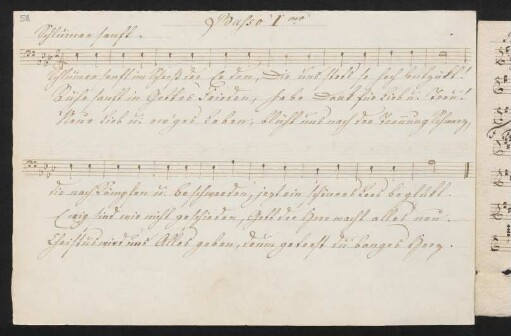 58
Basso I mo
Schlummer sanft.
Schlummre sanft im Schooß der Erden, die uns stets so hoch entzückt!
Ruhe sanft in Gottes Frieden, habe Dank für Lieb u. Treu!
Neue Lieb u. ew'ges Leben, blüht uns nach der Trennung Schmerz,
die nach Kämpfen u. Beschwerden, jezt ein schönres Loos beglükt.
Ewig sind wir nicht geschieden, Gott der Herr macht alles neu.
Christus wird uns Alles geben, drum getrost du banges Herz.